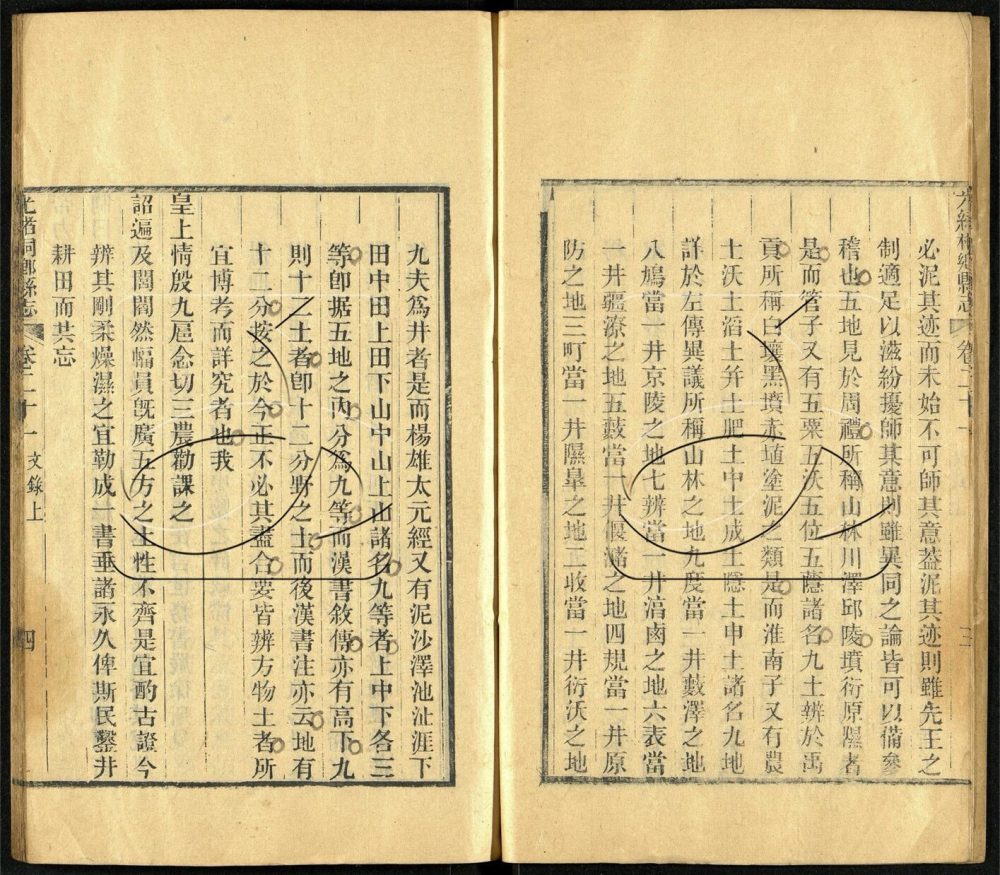 必泥其迹而未始不可師其意葢泥其迹則雖先王之
制適足以滋紛擾師其意則雖異同之論皆可以備參
稽也五地見於周禮所稱山林川澤邱陵墳衍原隰者
是而管子又有五粟五沃五位五蔭諸名九土辨於禹
貢所稱白壤黑墳赤埴塗泥之類是而淮南子又有農
土沃土滔土幷土肥土中土成土隱土申土諸名九地
詳於左傳異議所稱山林之地九度當一井藪澤之地
八鳩當一井京陵之地七辨當一井淳鹵之地六表當
一井疆潦之地五藪當一井偃瀦之地四規當一井原
防之地三町當一井隰臯之地二牧當一井衍沃之地
九夫爲井者是而楊雄太元經又有泥沙澤池沚涯下
田中田上田下山中山上山諸名九等者上中下各三
等卽据五地之內分爲九等而漢書敘傳亦有高下九
則十二土者卽十二分野之土而後漢書注亦云地有
十二分按之於今正不必其盡合要皆辨方物土者所
宜博考而詳究者也我
皇上情殷九扈念切三農勸課之
詔遍及閭閻然幅員旣廣五方之土性不齊是宜酌古證今
辨其剛柔燥濕之宜勒成一書垂諸永久俾斯民鑿井
耕田而共忘
光緒桐鄉縣志 卷二十一 文錄上 四